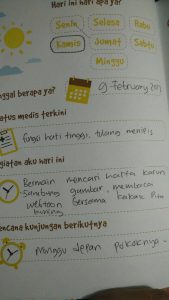 Hari ini hari apa ya?
Senin Selasa Rabu
Kamis Jumat Sabtu
Minggu
nggal berapa ya?
9 February
atus medis terkini
fungsi hati tinggi, tulang menipis
giatan aku hari ini
Bermain mencari harta karun
Sambung gambar, membaca
bersama kakak Pita
kuning
encana kunjungan berikutnya
Minggu depan pokoknya -